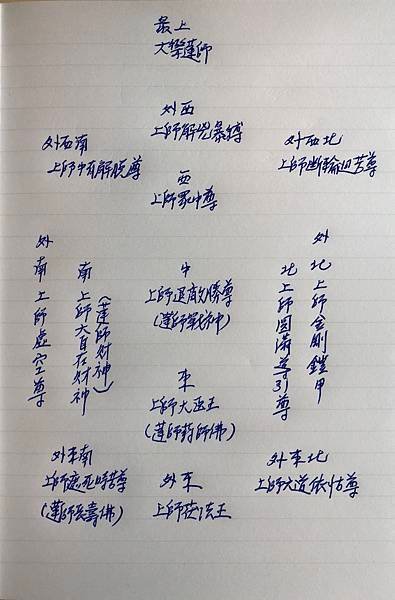 最上
大樂蓮師
外西
上師解兇暴縛
外西南
上師中有解脫尊
外西北
上師斷輪迴苦尊
西
上師眾中尊
外南上師虛空尊
南上師大自在財神
(蓮師財神)
中
上師退敵勝尊
(蓮師戰神)
北上師圓滿導引尊
外北上師金剛鎧甲
東
上師大醫王
(蓮師藥師佛)
外東南
上師遮死時苦尊
(蓮師長壽佛)
外東
上師 法王
外東北
上師大道依怙尊